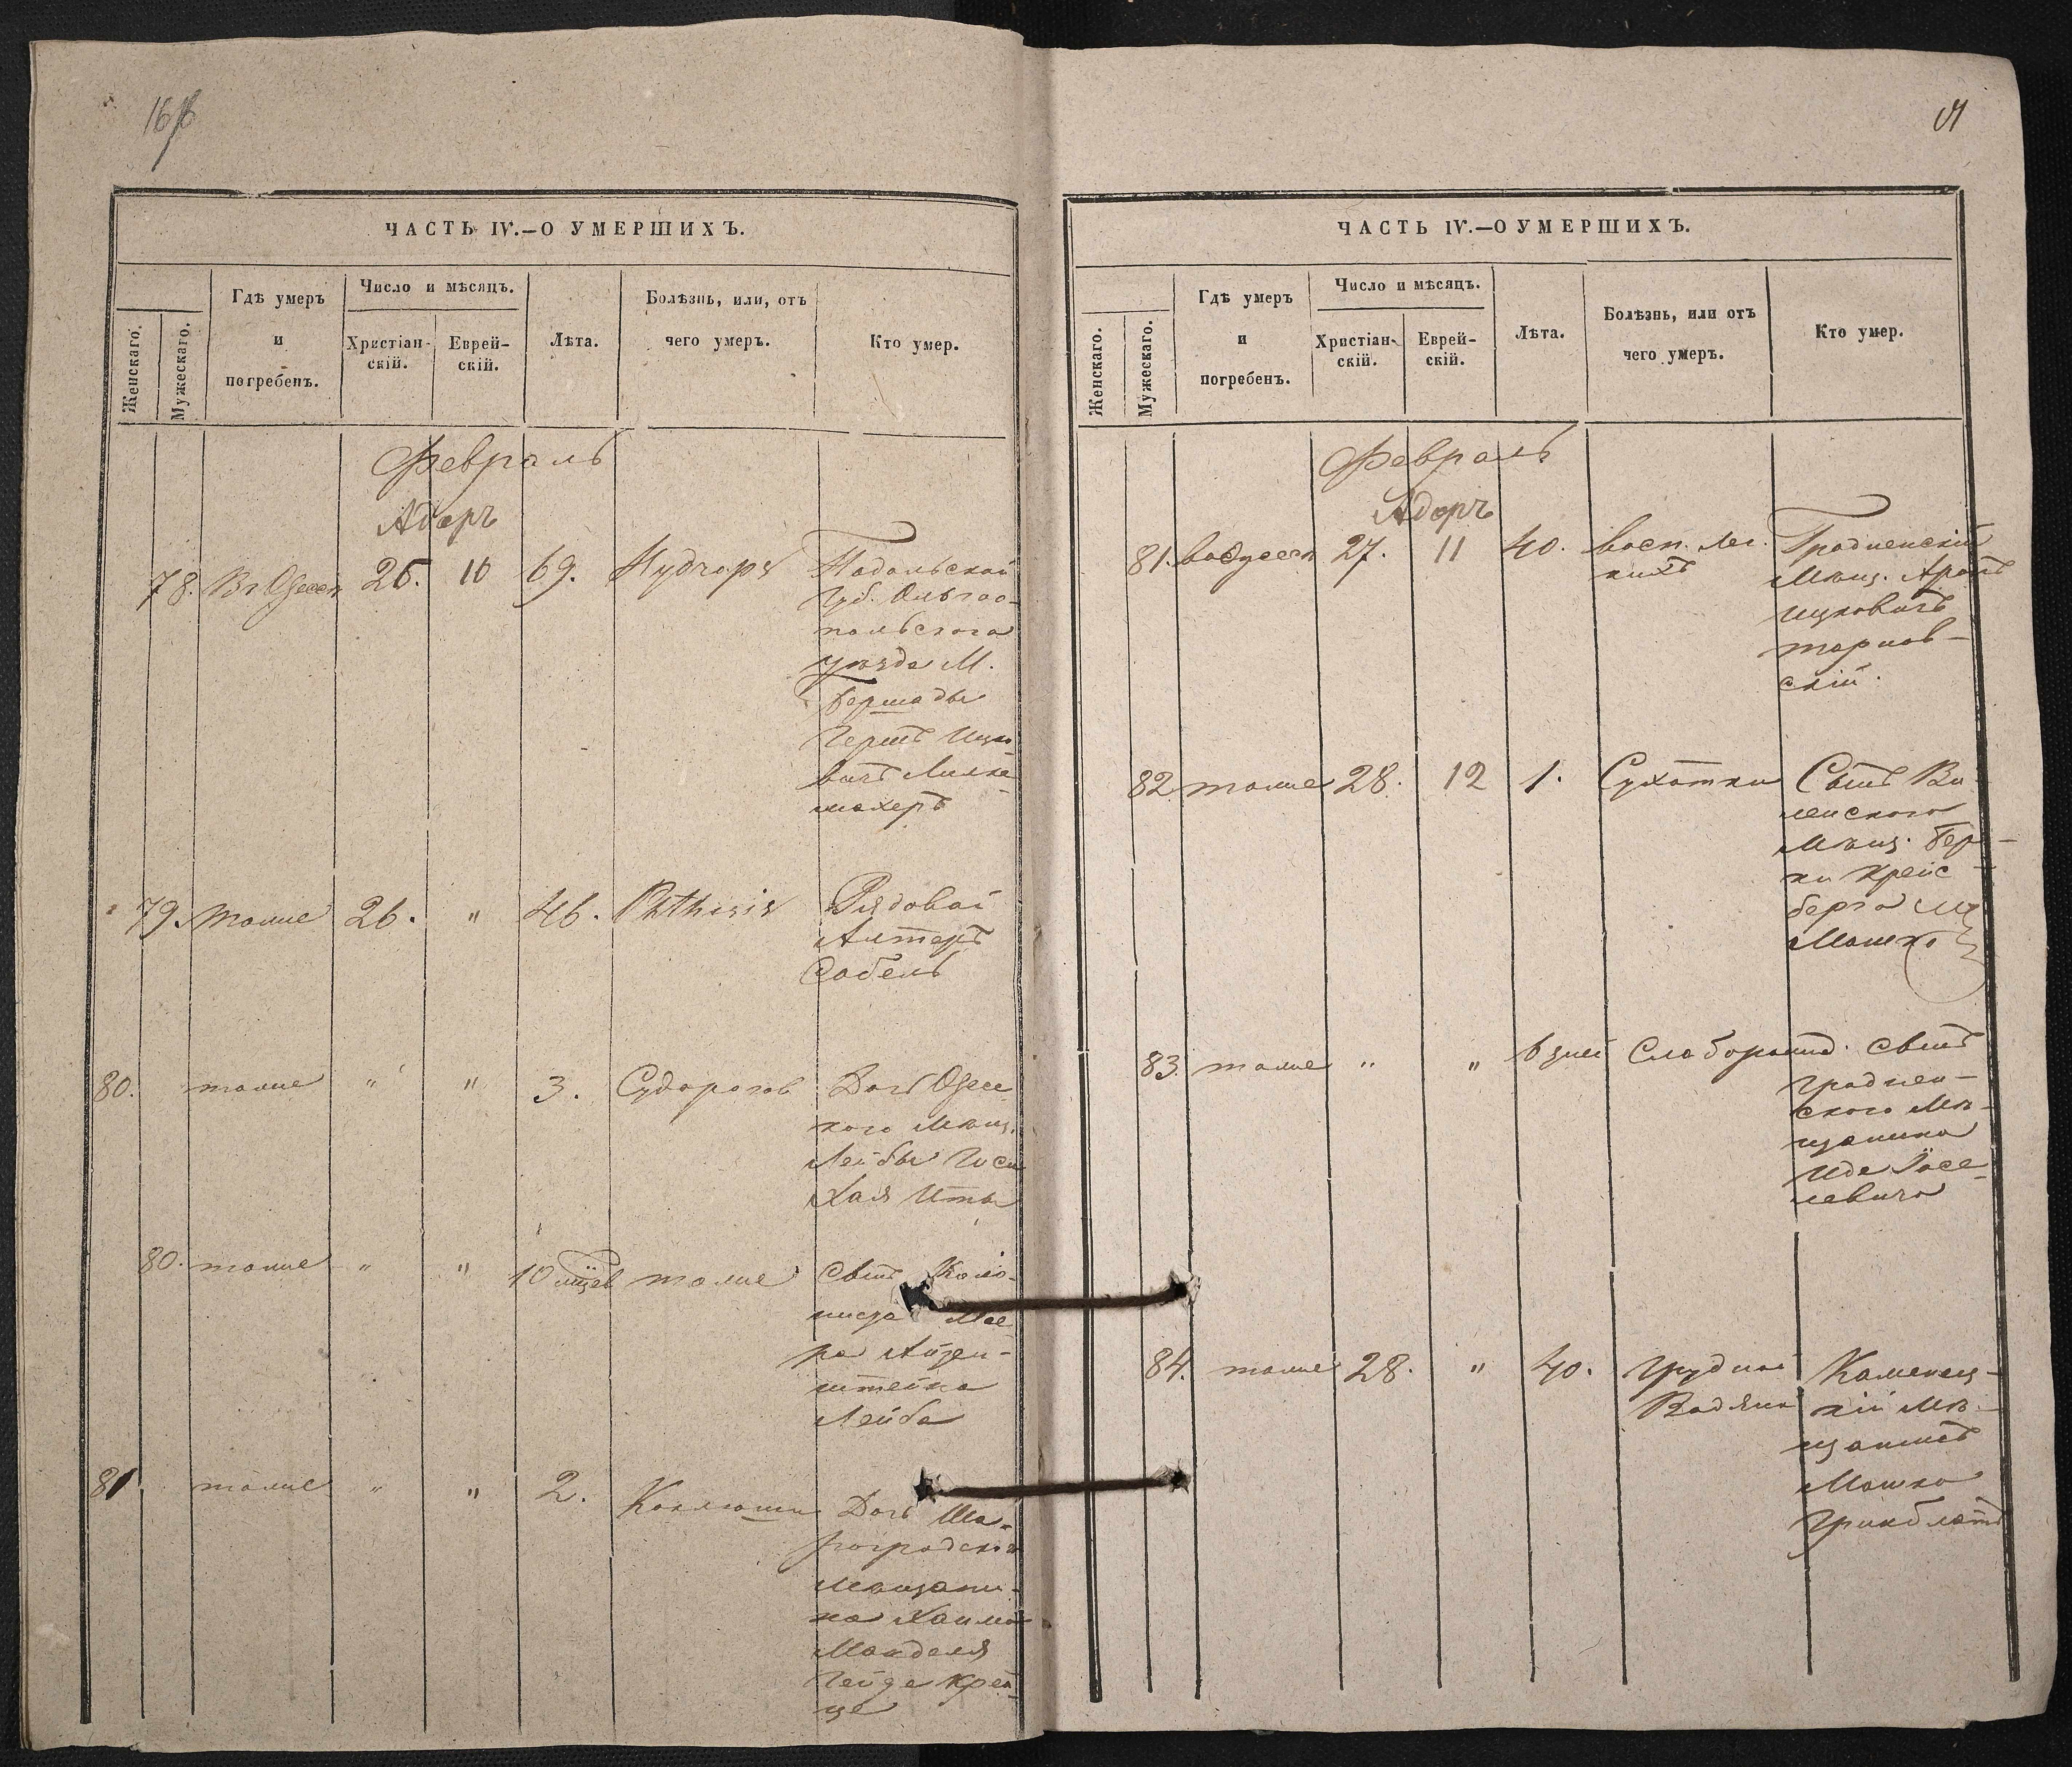 ЧАСТЬ IV.—О УМЕРШИХЪ.
Женскаго.
Мужескаго.
Гдѣ умеръ
и
погребенъ.
Число и мѣсяцъ.
Христіан-
скій.
Еврей-
скій.
Лѣта.
Болѣзнь, или, отъ
чего умеръ.
Кто умер.
Февраль
Адаръ
78. Въ Одессѣ 26. 10 69. Подольской
Губ. Ольгоо-
польского
уѣзда М.
Бершады
Гершъ Ицко-
вичъ
махеръ
79. тоже 26. " 46. Phthisis Рядовой
Алтеръ
Собель
80. тоже " " 3. Судорогов Дочь Одес
кого Мѣщ.
Лейбы
Хая Ита
80. тоже " " 10 мцев тоже Сынъ Коло-
ниста Мее-
ра Айзен-
штейна
Лейба
81. тоже " " 2. Коклюши Дочь Ша-
ргородского
Мѣщани-
на Хаима
Манделя
Гейде Крей-
це
ЧАСТЬ IV.—О УМЕРШИХЪ.
Женскаго.
Мужескаго.
Гдѣ умеръ
и
погребенъ.
Число и мѣсяцъ.
Христіан-
скій.
Еврей-
скій.
Лѣта.
Болѣзнь, или отъ
чего умеръ.
Кто умер.
Февраль
Адаръ
81. во Одессѣ 27. 11 40. Восп. лег. Гродненскій
кихъ Мѣщ. Аронъ
Ицковичъ
тарнов-
скій.
82 тоже 28. 12 1. Сухотки Сынъ Ви
ленского
Мѣщ. Бер-
ки Крейс
берга
Мошко
83. тоже " " 6 дней Слаборожд. Сынъ
гроднен-
ского Мѣ-
щанина
Иде Іосе-
левича
84. тоже 28. " 40. грудной Каменец-
Водяни кій Мѣ-
щанинъ
Мошко
Гринблатъ